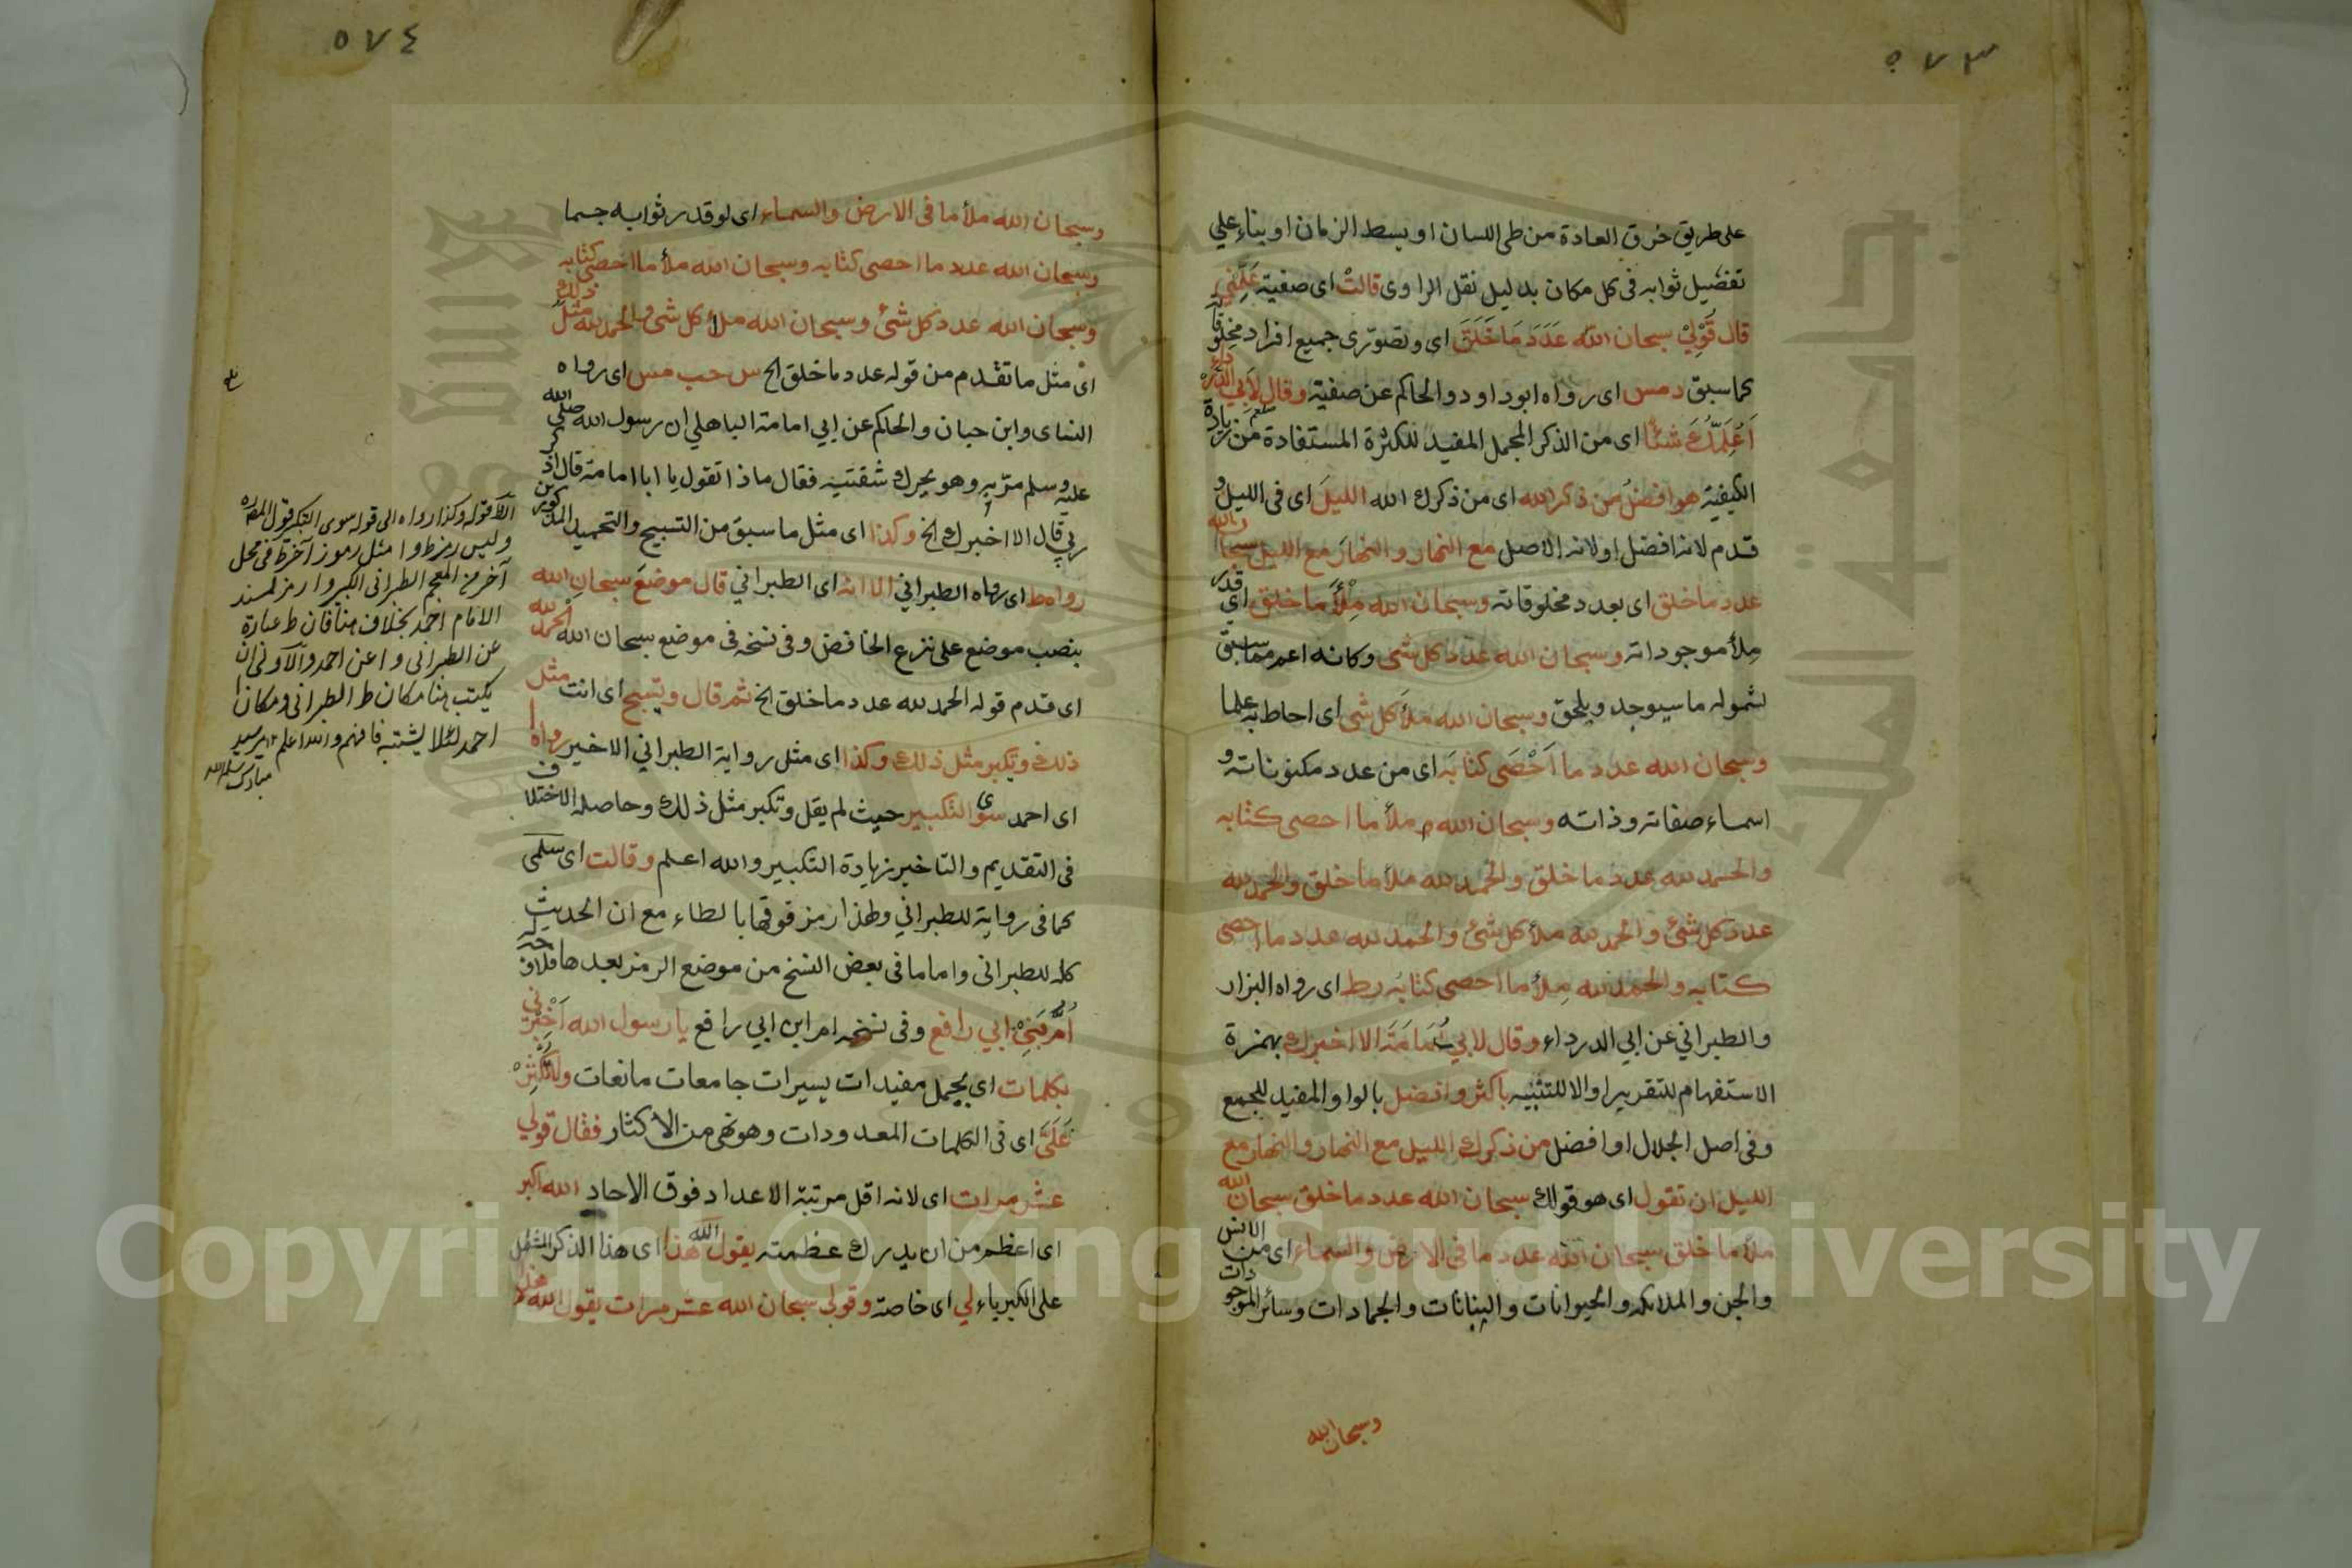 ٥٧٣
على طريق خرق العادة من طي اللسان او بسط الزمان او بناء على
تفضيل ثوابه في كل مكان بدليل نقل الراوى قالت اى صفية عَلِّمْني
قال قُوْلِيْ سبحان الله عَدَدَ مَا خَلَقَ اى وتصوّرى جميع افراد مخلوقاته
كما سبق د مس اى رواه ابو داود والحاكم عن صفية وقال لأبي الدرداء
اُعَلِّمُكَ شيئًا اى من الذكر المجمل المفيد للكثرة المستفادة من زيادة
الكيفية هو افضلُ من ذكر الله اى من ذكرك الله الليلَ اى في الليل و
قدم لانه افضل او لانه الاصل مع النهار والنهارَ مع الليل سبحان الله
عدد ما خلق اى بعدد مخلوقاته وسبحان الله مِلْأَ ما خلق اي قدر
مِلأ موجوداته وسبحان الله عدد كل شى وكانه اعم مما سبق
لشموله ما سيوجد ويلحق وسبحان الله ملأ كل شى اى احاط به علما
وسبحان الله عدد ما اَحْصَى كتابَه اى من عدد مكنوناته و
اسماء صفاته وذاته وسبحان الله ملأ ما احصى كتابه
والحمد لله عدد ما خلق والحمد لله ملأ ما خلق والحمد لله
عدد كل شئ والحمد لله ملأ كل شئ والحمد لله عدد ما احصى
كتابه والحمد لله مِلأ ما احصى كتابُه ر ط اى رواه البزار
والطبراني عن ابي الدرداء وقال لابي اُمَامَةَ الا اخبرك بهمزة
الاستفهام للتقرير او الا للتنبيه باكثر وافضل بالواو المفيد للجمع
وفى اصل الجلال او افضل من ذكرك الليل مع النهار والنهار مع
الليل ان تقول اى هو قولك سبحان الله عدد ما خلق سبحان الله
ملأ ما خلق سبحان الله عدد ما في الارض والسماء اى من الانس
والجن والملائكة والحيوانات والنباتات والجمادات وسائر الموجودات
وسبحان الله
٥٧٤
وسبحان الله ملأ ما في الارض والسماء اى لو قدر ثوابه جسما
وسبحان الله عدد ما احصى كتابه وسبحان الله ملأ ما احصى كتابه
وسبحان الله عدد كل شئ وسبحان الله ملأ كل شى والحمد لله مثل ذلك
اى مثل ما تقدم من قوله عدد ما خلق الخ س حب مس اى رواه
النساى وابن حبان والحاكم عن ابي امامة الباهلي ان رسول الله صلى الله
عليه وسلم مرّ به وهو يحرك شفتيه فقال ماذا تقول يا ابا امامة قال اذكر
ربي قال الا اخبرك الخ وكذا اى مثل ما سبق من التسبيح والتحميد المذكورين
رواه ط اى رواه الطبراني الا انه اى الطبراني قال موضعَ سبحان الله
بنصب موضع على نزع الخافض وفي نسخة في موضع سبحان الله الحمد لله
اى قدم قوله الحمد لله عدد ما خلق الخ ثم قال وتسبح اى انت مثل
ذلك وتكبر مثل ذلك وكذا اى مثل رواية الطبراني الاخير رواه ا
اى احمد سوى التكبير حيث لم يقل وتكبر مثل ذلك وحاصله الاختلاف
في التقديم والتاخير بزيادة التكبير والله اعلم وقالت اى سلمى
كما في رواية للطبراني ولهذا رمز فوقها بالطاء مع ان الحديث
كله للطبرانى واما ما في بعض النسخ من موضع الرمز بعدها فلا وجه له
اُمُّ بَنِيْ ابي رافع وفى نسخة ام ابن ابي رافع يا رسول الله اَخْبِرْني
بكلمات اى بجمل مفيدات يسيرات جامعات مانعات ولا تُكْثِرْ
عَلَيَّ اى في الكلمات المعدودات وهو نهى من الاكثار فقال قولي
عشر مرات اى لانه اقل مرتبة الاعداد فوق الاحاد الله اكبر
اى اعظم من ان يدرك عظمته يقول الله هذا اى هذا الذكر المشتمل
على الكبرياء لي اى خاصة وقولى سبحان الله عشر مرات يقول الله هذا لي
الا قوله وكذا رواه الى قوله سوى التكبير قول المصـ
وليس رمز ط وا مثل رموز آخر ط في محل
آخر من المعجم الطبرانى الكبير وا رمز لمسند
الامام احمد بخلاف هنا فان ط عبارة
عن الطبرانى وا عن احمد والاولى ان
يكتب هنا مكان ط الطبرانى ومكان ا
احمد لئلا يشتبه فافهم والله اعلم ١٢ مير سيد
مبارك سلمه الله
Copyright © King Saud University
جامعة الملك سعود